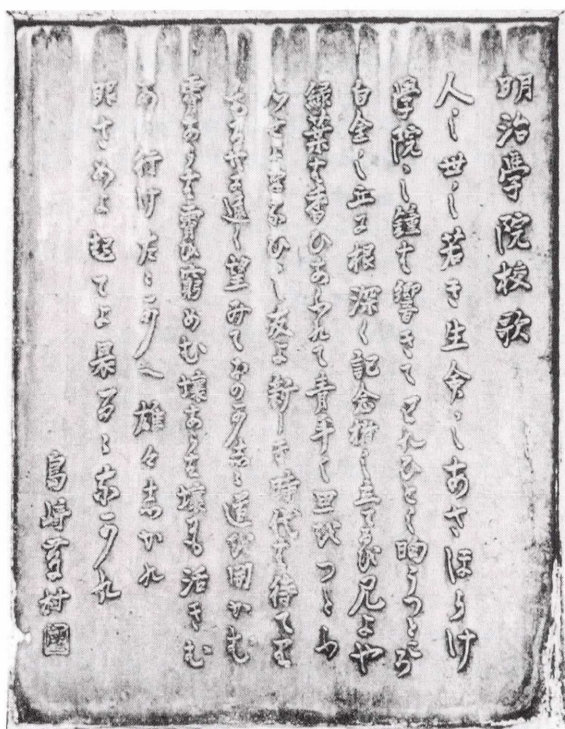 明治學院校歌
人の世の若き生命のあさぼらけ
學院の鐘は響きてわれひとの胸うつところ
白金の丘に根深く記念樹の立てるを見よや
緑葉は香ひあふれて青年の思ひつたふ
心せよ學びの友よ新しき時代は待てり
もろともに遠く望みておのがじし道を開かむ
霄あらば霄を窮めむ壤あらば壤にも活きむ
あゝ行けたゝかへ雄々志かれ
眼さめよ起てよ畏るゝなかれ
島崎藤村